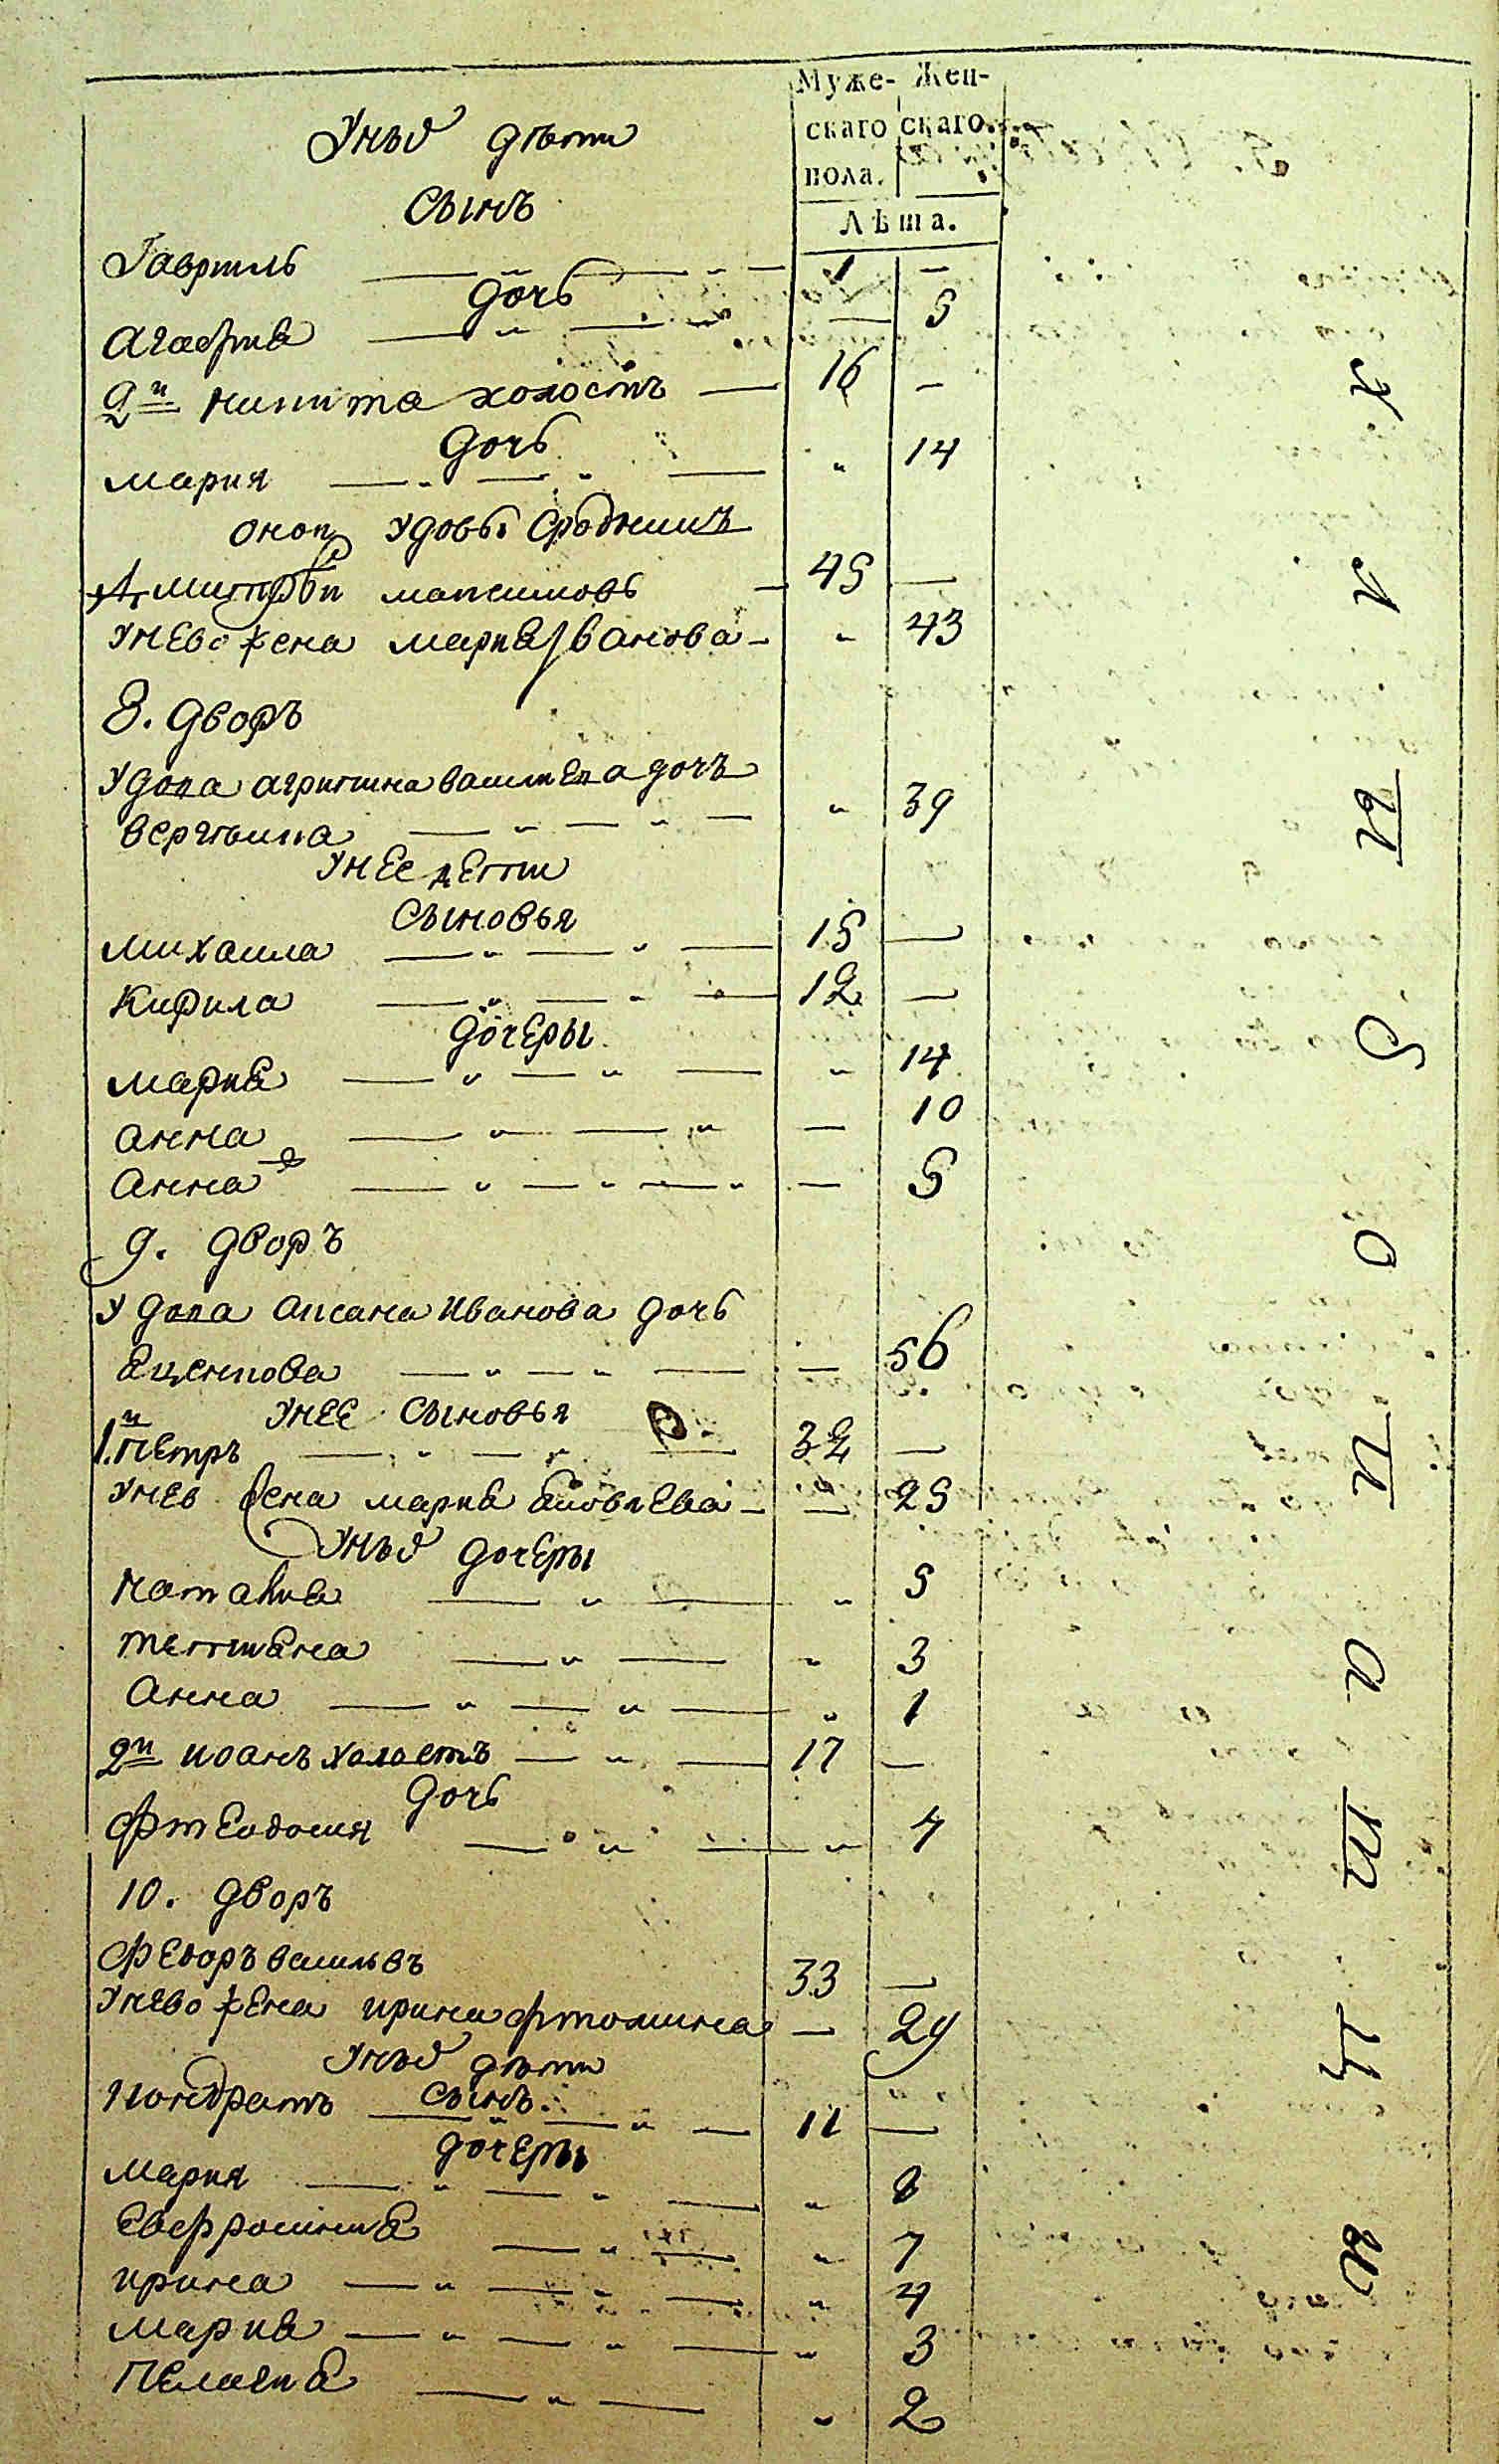 Муже- Жен-
скаго скаго
пола.
Лѣта.
Унихъ дѣти
сынъ
Гавриль 1 —
дочь
Агафия — 5
2й никита холостъ — 16 —
дочь
мария „ 14
оной удовы сродникъ
Дмитрей максимовъ — 45 —
унево жена мария Иванова — „ 43
8. дворъ
удова агрипина василева дочъ
вергтьина „ 39
унее дети
сыновья
михаила 15 —
Кирила 12 —
дочеры
мария „ 14
анна — 10
анна — 5
9. дворъ
удова аксана иванова дочь
яценкова — 56
унее сыновья
1.й петръ 32 —
унево жена мария яковлева — — 25
Унихъ дочеры
наталия „ 5
тетияна „ 3
анна „ 1
2й иоанъ холостъ 17 —
дочь
Фтеодосия „ 4
10. дворъ
Федоръ василъвъ 33 —
унево жена ирина фтомина — 29
Унихъ дѣти
сынъ
Кондратъ 11 —
дочеры
мария „ 8
Евфросиния „ 7
ирина „ 4
мария „ 3
пелагия „ 2